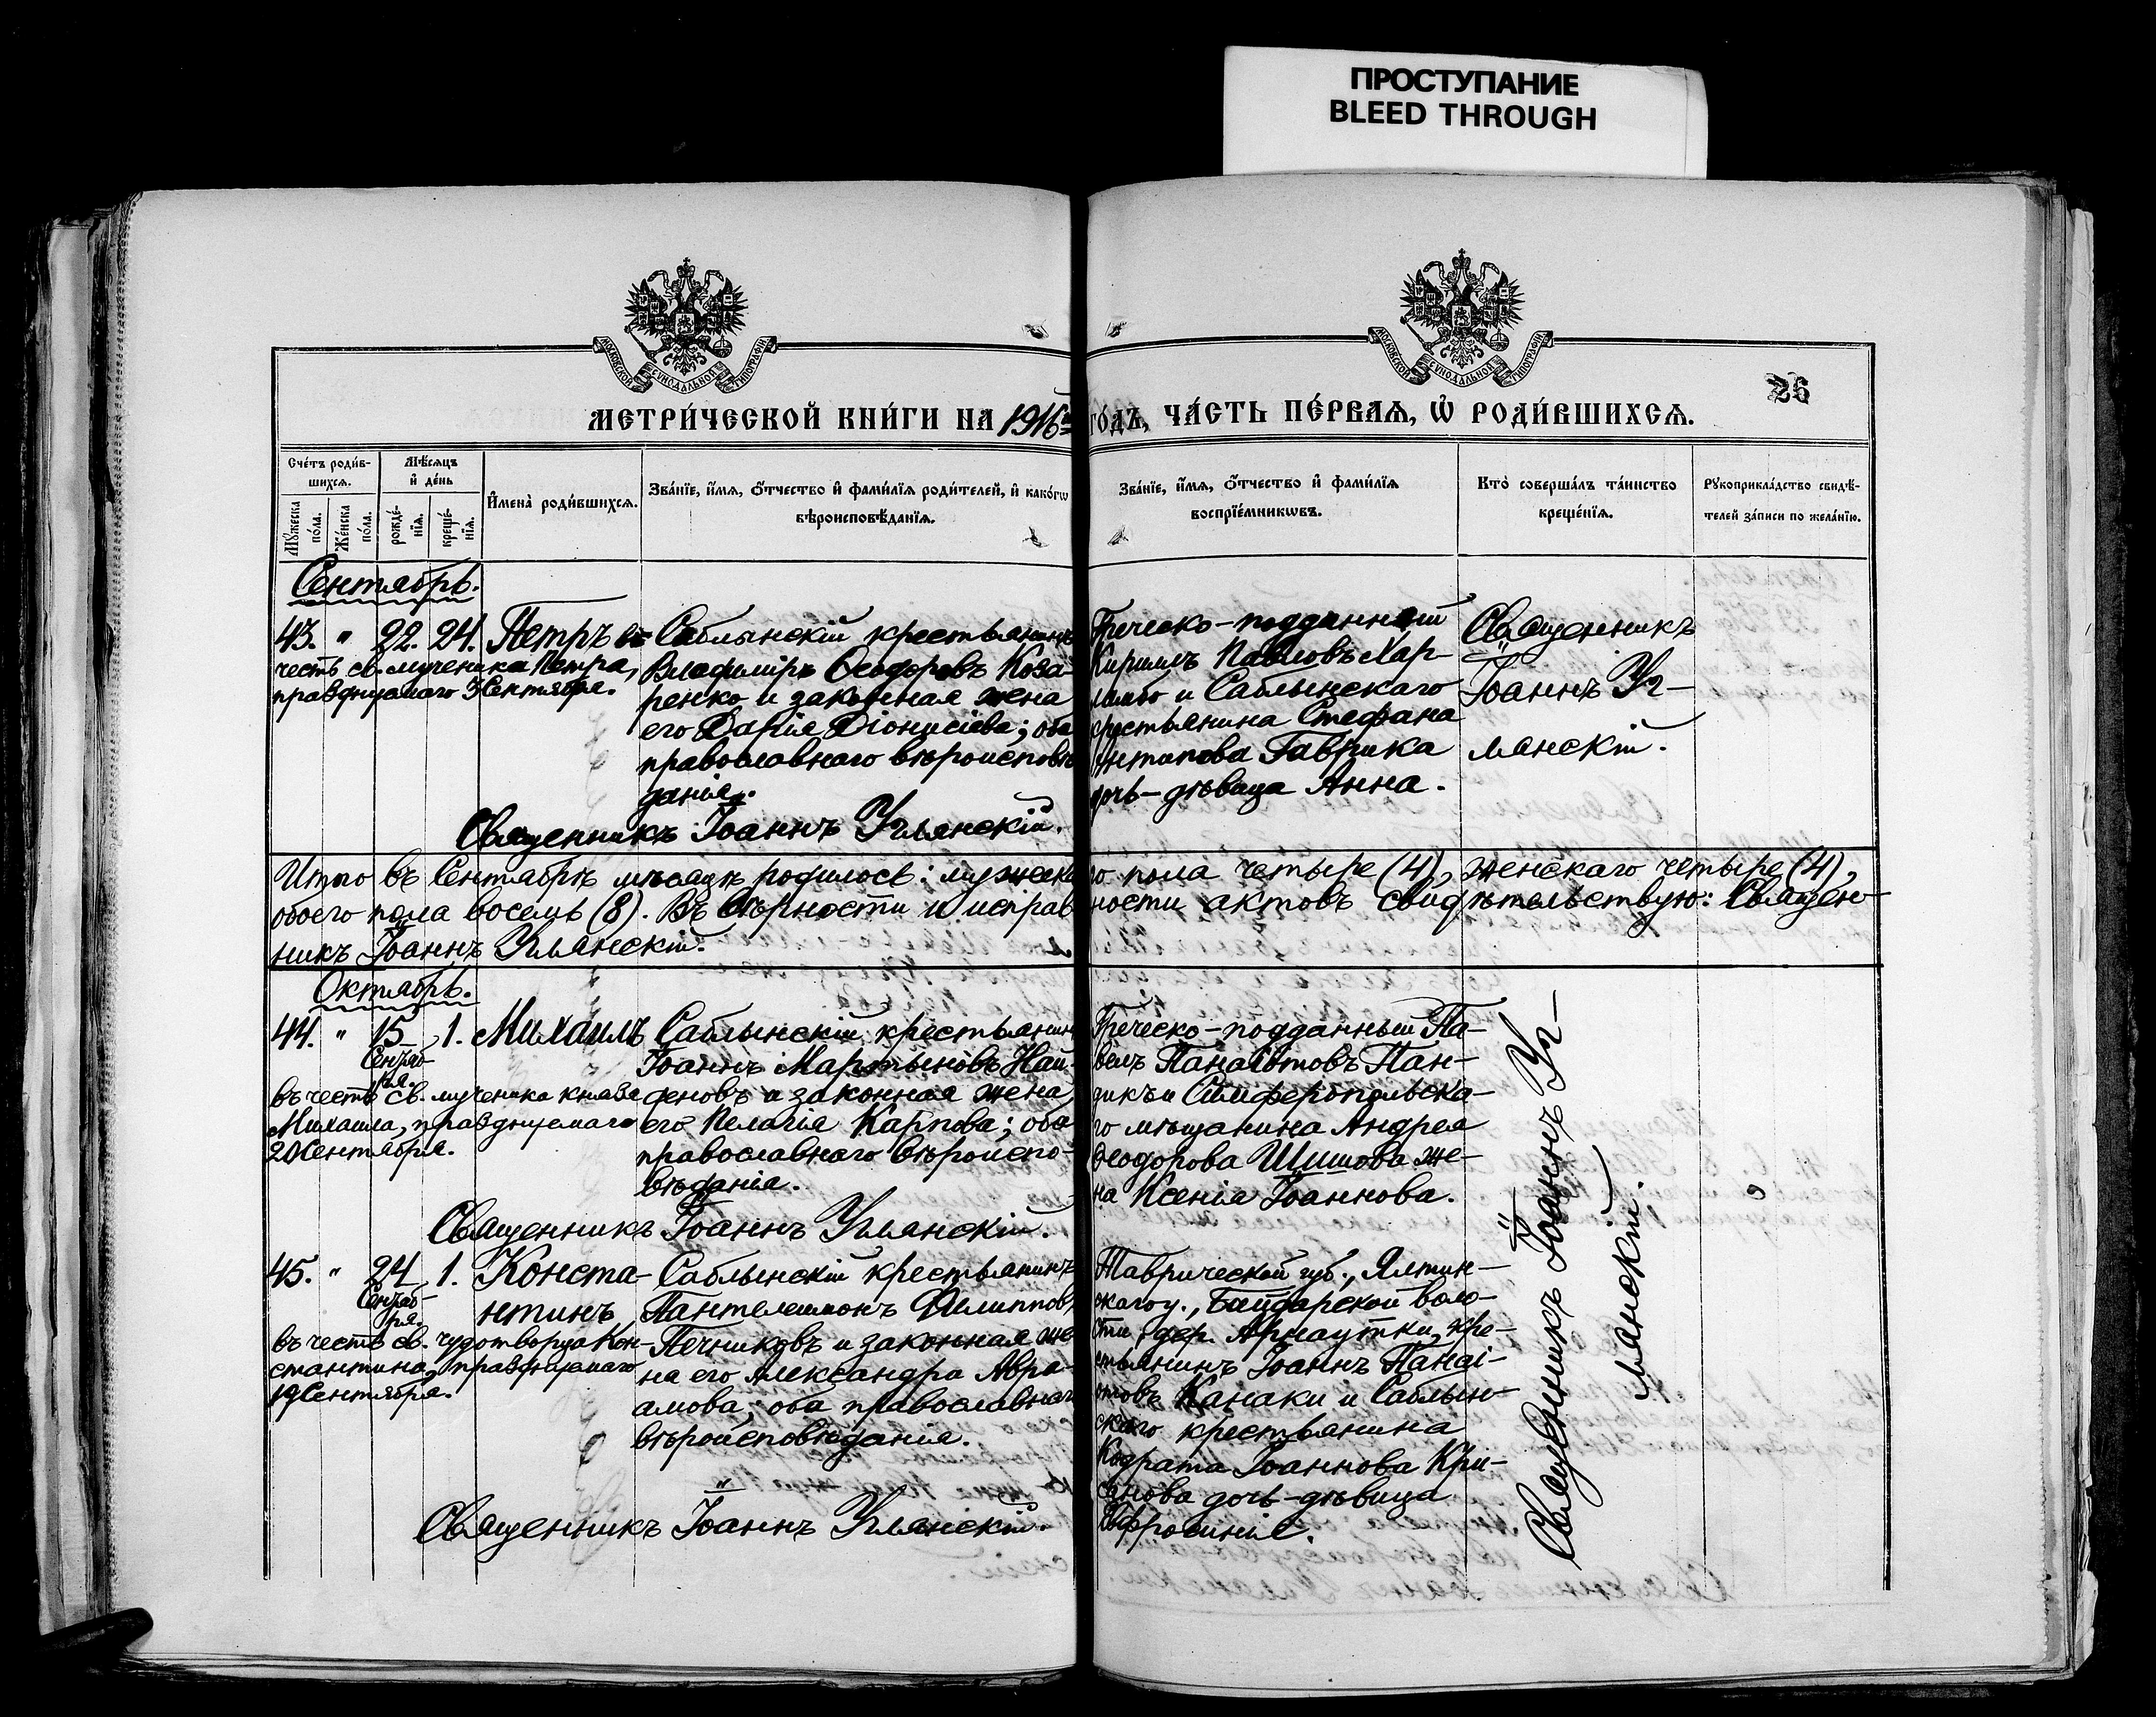 ПРОСТУПАНИЕ
BLEED THROUGH
МОСКОВСКОЙ СѴНОДАЛЬНОЙ ТИПОГРАФІИ
МОСКОВСКОЙ СѴНОДАЛЬНОЙ ТИПОГРАФІИ
26
МЕТРИ́ЧЕСКОЙ КНИ́ГИ НА 1916й
ГО́ДЪ, ЧА́СТЬ ПЕ́РВАѦ, Ѡ҆ РОДИ́ВШИХСѦ.
Сче́тъ роди́в-
шихсѧ.
Мꙋ́жеска
по́ла.
Же́нска
по́ла.
Мѣ́сѧцъ
и҆ де́нь
рожде́-
нїѧ.
креще́-
нїѧ.
И҆мена̀ роди́вшихсѧ.
Зва́нїе, и҆́мѧ, ѻ҆́тчество и҆ фами́лїѧ роди́телей, и҆ како́гѡ
вѣроисповѣ́данїѧ.
Зва́нїе, и҆́мѧ, ѻ҆́тчество и҆ фами́лїѧ
воспрїе́мникѡвъ.
Кто̀ соверша́лъ та́инство
креще́нїѧ.
Рꙋкоприкла́дство свидѣ́-
телей за́писи по жела́нїю.
Сентябрь.
43. " 22. 24. Петръ въ
честь св. мученика Петра,
празднуемаго 3 Сентября.
Саблынскій крестьянинъ
Владиміръ Ѳеодоровъ Коза-
ренко и законная жена
его Дарія Діонисіева; оба
православнаго вѣроисповѣ
данія.
Священникъ Іоаннъ Углянскій.
Греческо-подданный
Кириллъ Павловъ Хар-
ламбо и Саблынскаго
крестьянина Стефана
Антипова Гаврика
дочь-дѣвица Анна.
Священникъ
Іоаннъ Уг-
лянскій.
Итого въ Сентябрѣ мѣсяцѣ родилось: мужеска
го пола четыре (4), женскаго четыре (4),
обоего пола восемь (8). Въ вѣрности и исправ
ности актовъ свидѣтельствую: Священ-
никъ Іоаннъ Углянскій.
Октябрь.
44. " 15 1. Михаилъ
Сентяб-
ря.
въ честь св. мученика князя
Михаила, празднуемаго
20 Сентября.
Саблынскій крестьянинъ
Іоаннъ Мартыновъ Най-
деновъ и законная жена
его Пелагія Карпова; оба
православнаго вѣроиспо-
вѣданія.
Священникъ Іоаннъ Углянскій.
Греческо-подданный Па-
велъ Панаіотовъ Пан-
дикъи Симферопольска-
го мѣщанина Андрея
Ѳеодорова Шишова же-
на Ксенія Іоаннова.
45. " 24 1. Конста-
нтинъ
Сентяб-
ря.
въ честь св. чудотворца Кон-
стантина, празднуемаго
19 Сентября.
Саблынскій крестьянинъ
Пантелеимонъ Филиппов
Печниковъ и законная же
на его Александра Авра-
амова; оба православнаго
вѣроисповѣданія.
Священникъ Іоаннъ Углянскій.
Таврической губ., Ялтин-
скаго у., Байдарской воло-
сти, дер. Арнаутки, кре-
стьянинъ Іоаннъ Панаі-
отовъ Канаки и Саблын-
скаго крестьянина
Кодрата Іоаннова Кри-
санова дочь-дѣвица
Евфросинія.
Священникъ Іоаннъ Уг-
лянскій.